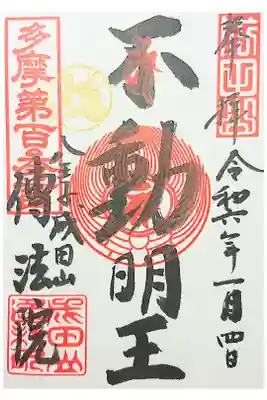 奉拝 令和六年一月四日
不動明王
八王子成田山
傳法院
多摩第百